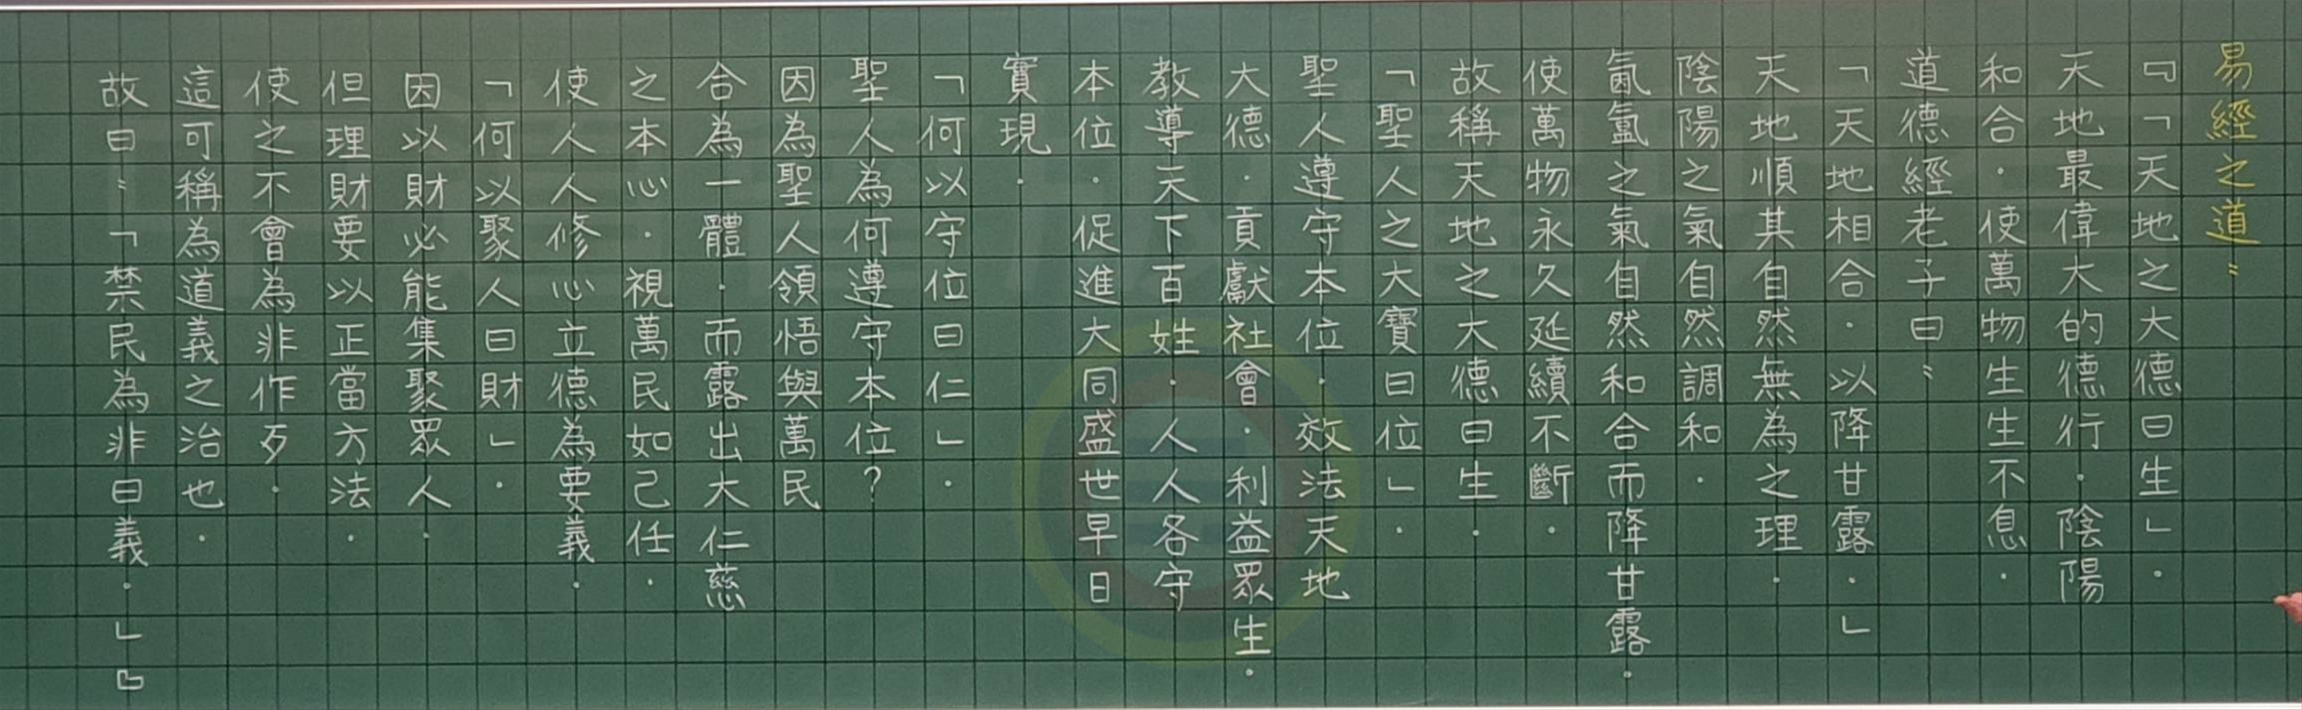 易經之道：
『「天地之大德曰生」．
天地最偉大的德行．陰陽
和合．使萬物生生不息．
道德經老子曰：
「天地相合．以降甘露．」
天地順其自然無為之理．
陰陽之氣自然調和．
氤氳之氣自然和合而降甘露．
使萬物永久延續不斷．
故稱天地之大德曰生．
「聖人之大寶曰位」．
聖人遵守本位．效法天地
大德．貢獻社會．利益眾生．
教導天下百姓．人人各守
本位．促進大同盛世早日
實現．
「何以守位曰仁」．
聖人為何遵守本位？
因為聖人領悟與萬民
合為一體．而露出大仁慈
之本心．視萬民如己任．
使人人修心立德為要義．
「何以聚人曰財」．
因以財必能集聚眾人．
但理財要以正當方法．
使之不會為非作歹．
這可稱為道義之治也．
故曰：「禁民為非曰義．」』